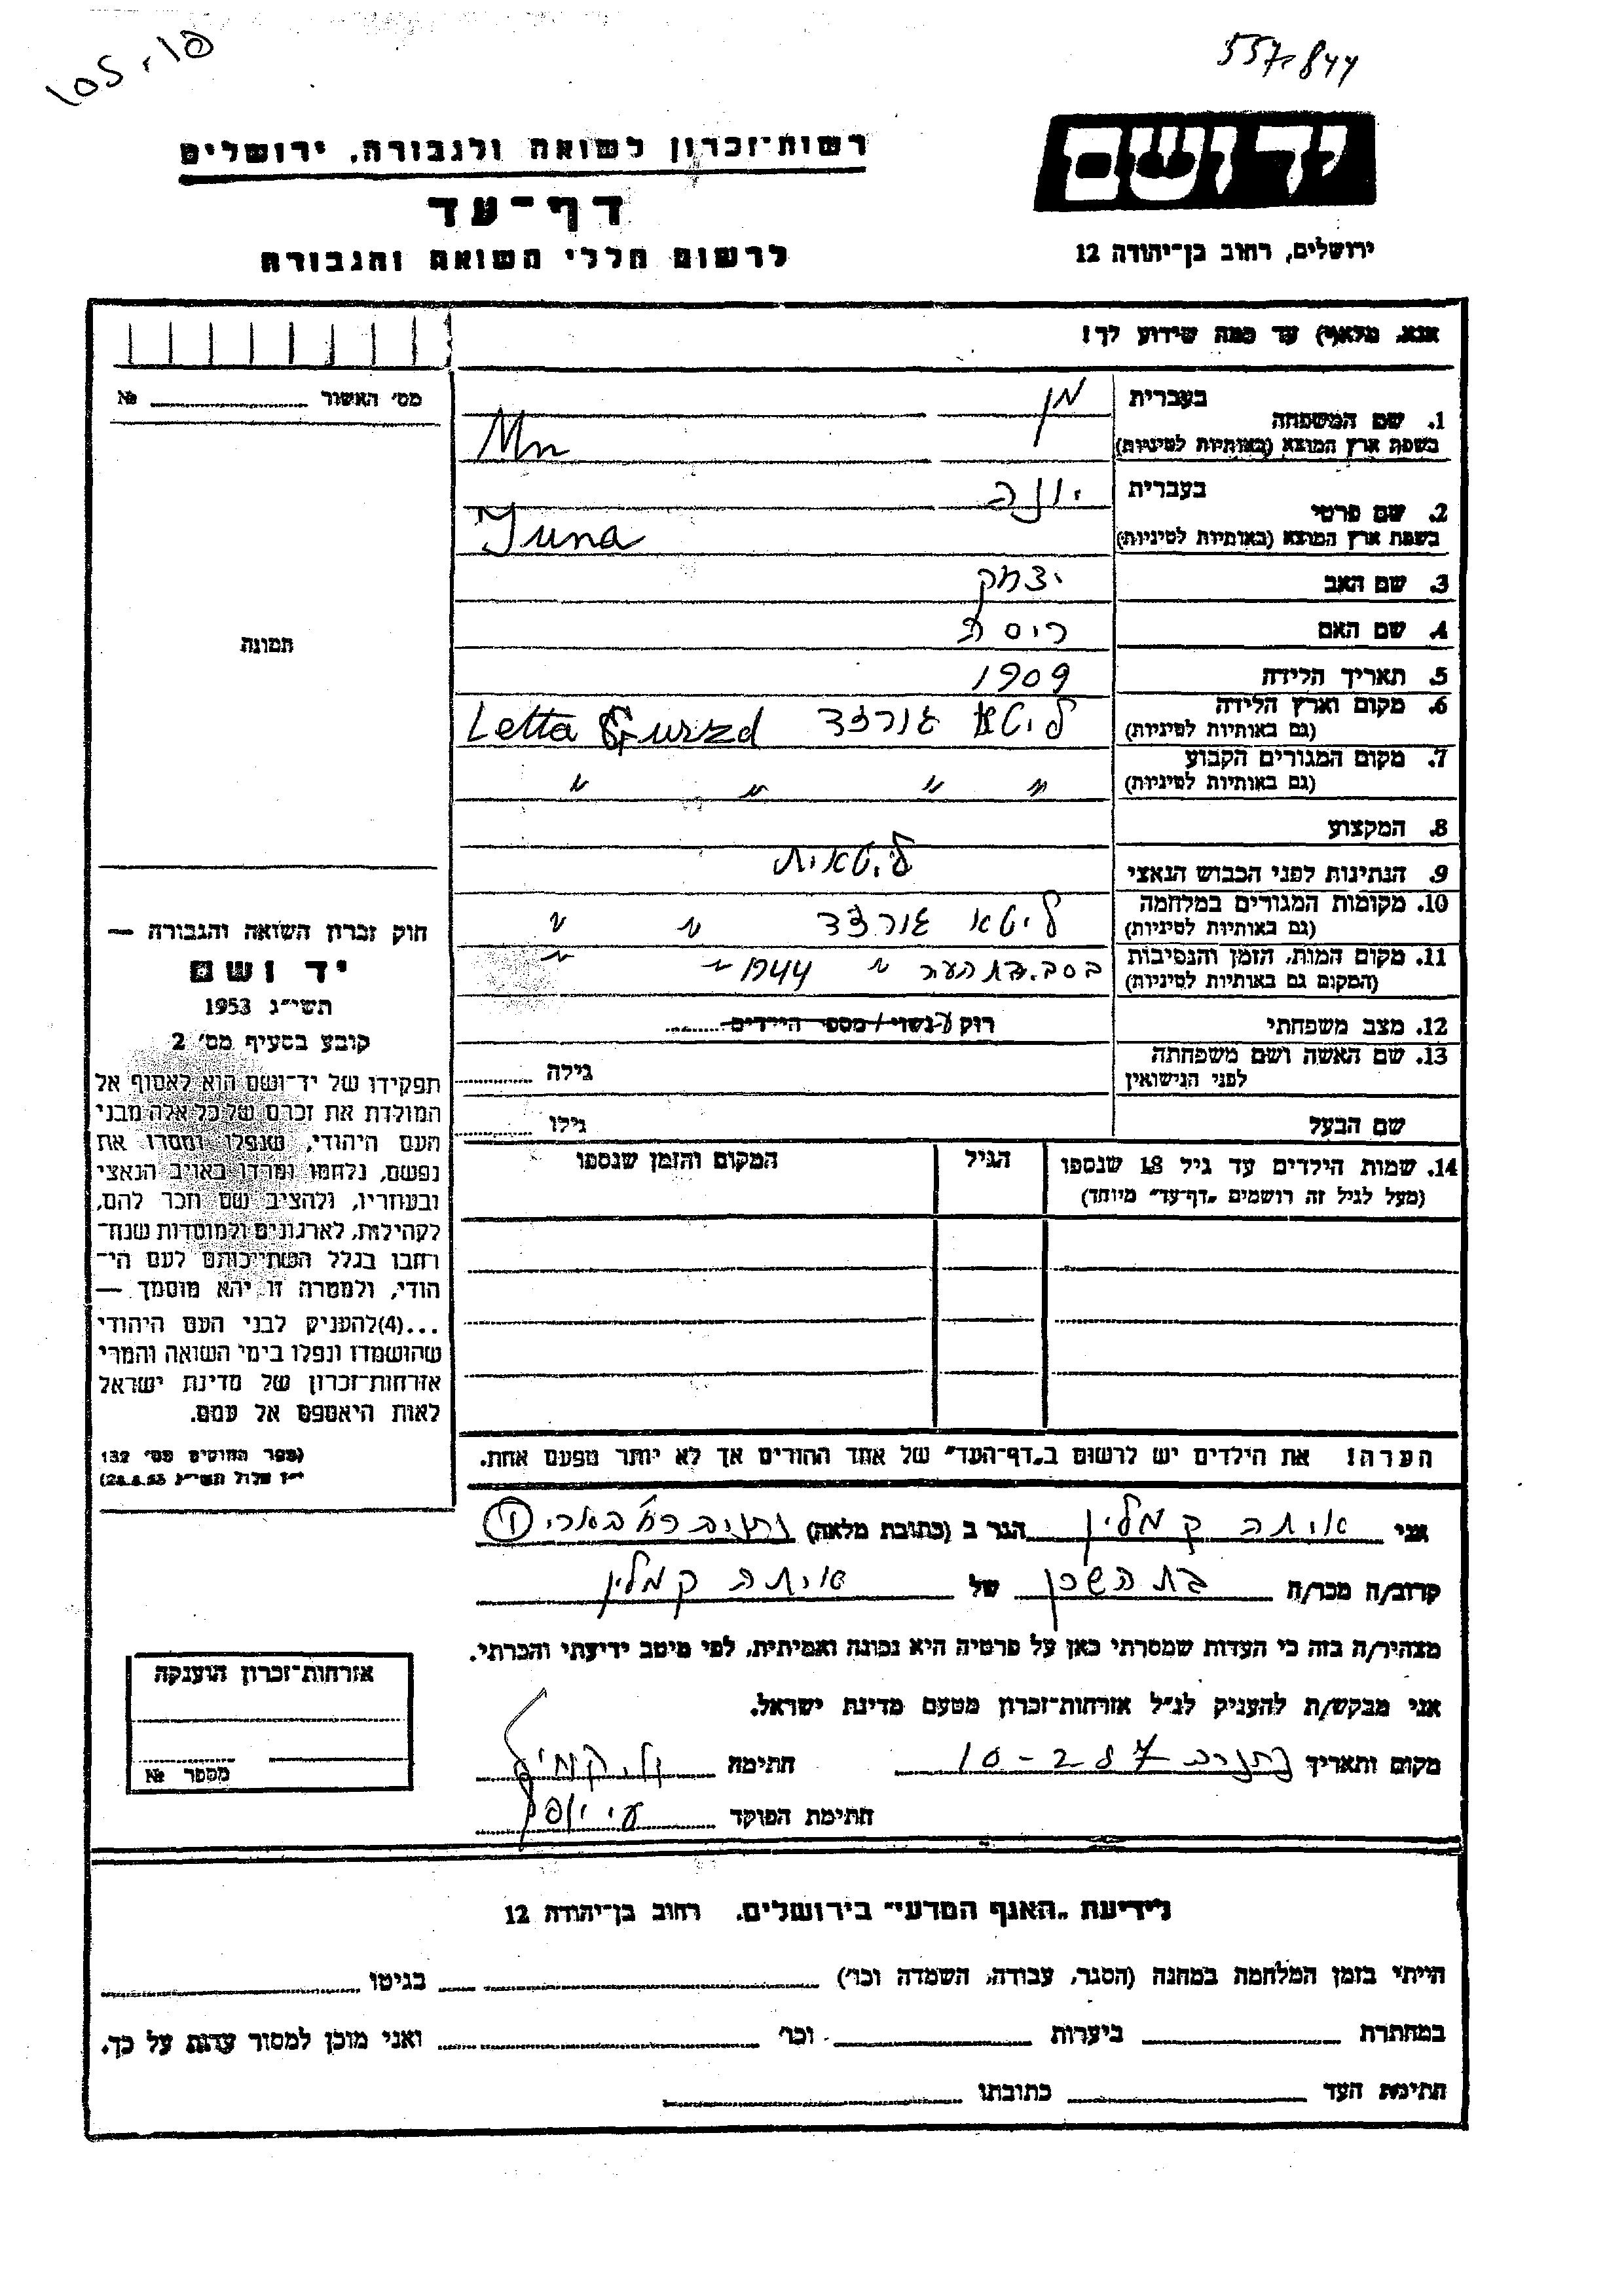 105-10
557-844
יד ושם
ירושלים, רחוב בן־יהודה 12
רשות־זכרון לשואה ולגבורה, ירושלים
דף־עד
לרשום חללי השואה והגבורה
אנא, מלא(י) עד כמה שידוע לך!
מס׳ האשור № 
תמונה
חוק זכרון השואה והגבורה —
יד ושם
תשי״ג 1953
קובע בסעיף מס׳ 2
תפקידו של יד־ושם הוא לאסוף אל
המולדת את זכרם של כל אלה מבני
העם היהודי, שנפלו ומסרו את
נפשם, נלחמו ומרדו באויב הנאצי
ובעוזריו, ולהציב שם וזכר להם,
לקהילות, לארגונים ולמוסדות שנח־
רחבו בגלל השתייכותם לעם הי־
הודי, ולמטרה זו יהא מוסמך —
...(4)להעניק לבני העם היהודי
שהושמדו ונפלו בימי השואה והמרי
אזרחות־זכרון של מדינת ישראל
לאות היאספם אל עמם.
(ספר החוקים מס׳ 132
י״ז אלול תשי״ג 28.8.53)
1. שם המשפחה
בעברית מן
בשפת ארץ המוצא (באותיות לטיניות) Mn
2. שם פרטי
בעברית יונה
בשפת ארץ המוצא (באותיות לטיניות) Juna
3. שם האב יצחק
4. שם האם
5. תאריך הלידה 1909
6. מקום וארץ הלידה ליטא גורזד Letta Gurzd
(גם באותיות לטיניות)
7. מקום המגורים הקבוע " " " "
(גם באותיות לטיניות)
8. המקצוע
9. הנתינות לפני הכבוש הנאצי ליטאית
10. מקומות המגורים במלחמה ליטא גורזד " "
(גם באותיות לטיניות)
11. מקום המות, הזמן והנסיבות בסביבת העיר " 1944 " "
(המקום גם באותיות לטיניות)
12. מצב משפחתי רוק/ה נשוי/ מספר הילדים
13. שם האשה ושם משפחתה גילה
לפני הנישואין
שם הבעל גילו
14. שמות הילדים עד גיל 18 שנספו הגיל המקום והזמן שנספו
(מעל לגיל זה רושמים „דף־עד״ מיוחד)
הערה! את הילדים יש לרשום ב„דף־העד״ של אחד ההורים אך לא יותר מפעם אחת.
אני איתה קמלין הגר ב (כתובת מלאה)
קרוב/ה מכר/ה בת השכן של איתה קמלין
מצהיר/ה בזה כי העדות שמסרתי כאן על פרטיה היא נכונה ואמיתית, לפי מיטב ידיעתי והכרתי.
אני מבקש/ת להעניק לנ״ל אזרחות־זכרון מטעם מדינת ישראל.
מקום ותאריך 10-2-87 חתימה
חתימת הפוקד
אזרחות־זכרון הוענקה
מספר №
לידיעת „האגף המדעי״ בירושלים, רחוב בן־יהודה 12
הייתי בזמן המלחמה במחנה (הסגר, עבודה, השמדה וכו׳) בגיטו
במחתרת ביערות וכו׳ ואני מוכן למסור עדות על כך.
חתימת העד כתובתו